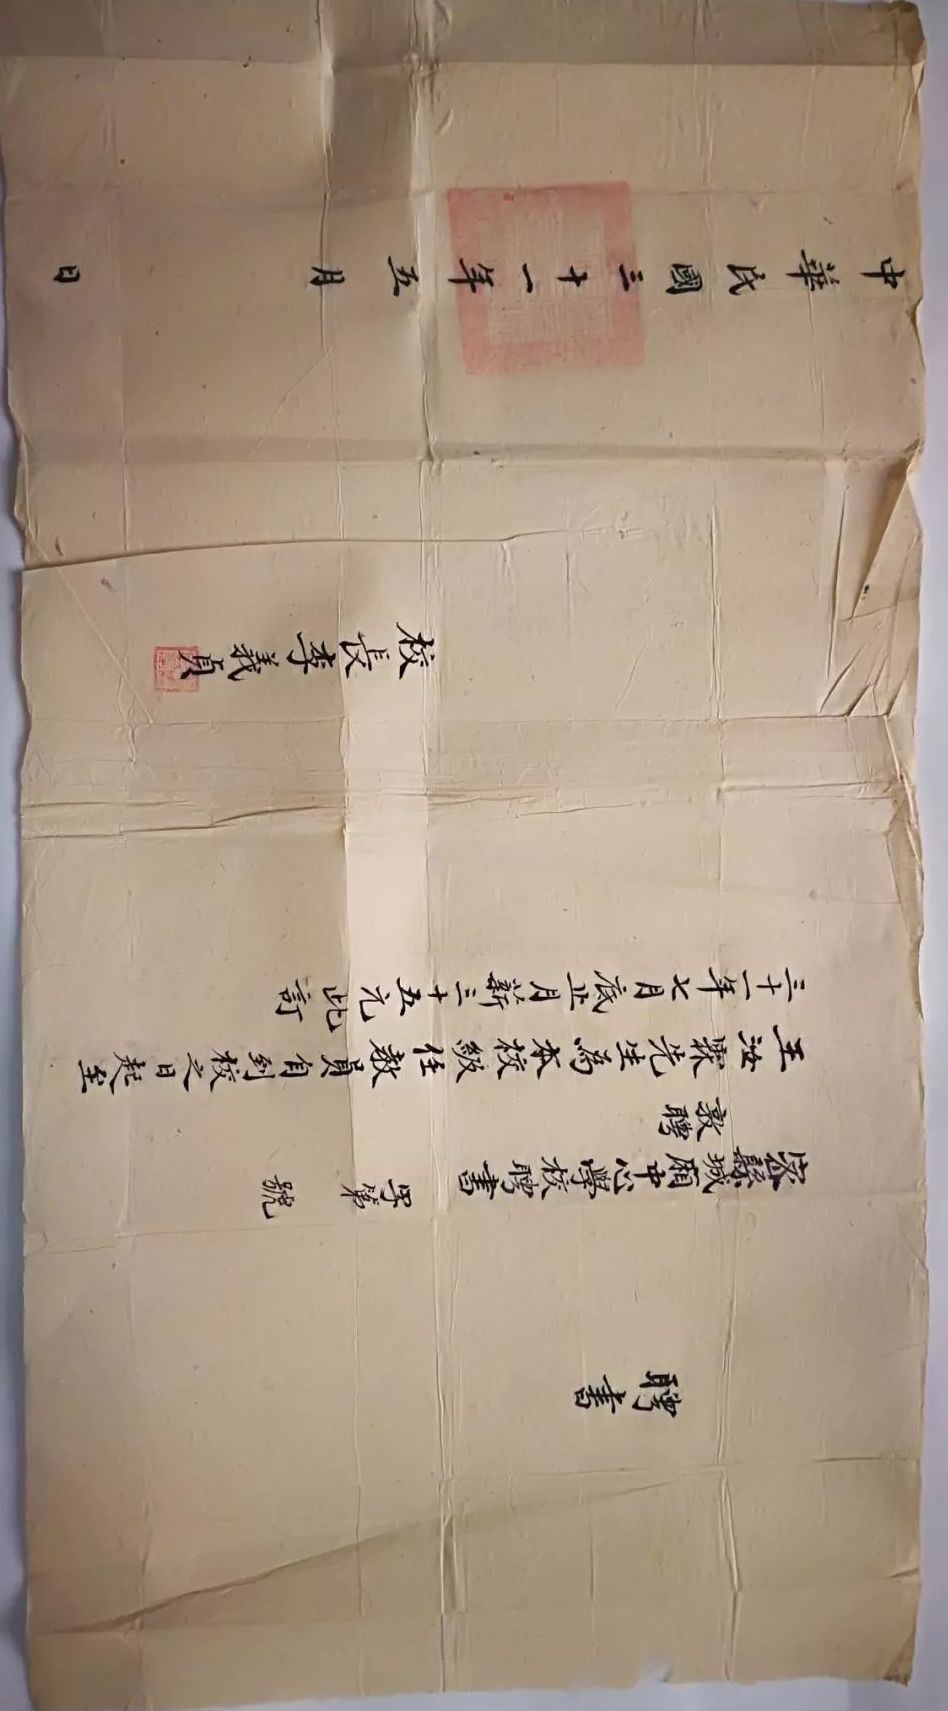 聘書
密縣城廂中心學校聘書 字第 號
敦聘
王汝霖先生為本校級任教員自到校之日起至
三十一年七月底止月薪三十五元此訂
校長李義貞
中華民國三十一年五月 日